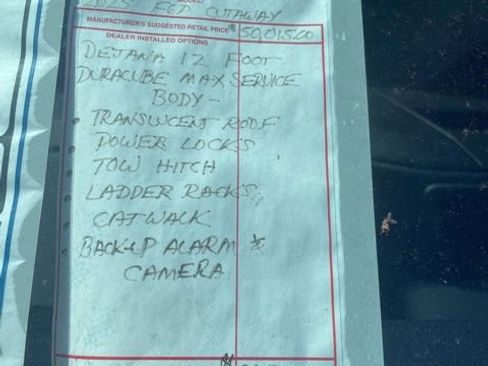 MODEL:
CUTAWAY
MANUFACTURER'S SUGGESTED RETAIL PRICE $ 50,015.00
DEALER INSTALLED OPTIONS
DEJANA 12 FOOT
DURACUBE MAX SERVICE
BODY -
TRANSLUCENT ROOF
POWER LOCKS
TOW HITCH
LADDER RACKS
CATWALK
BACK-UP ALARM &
CAMERA